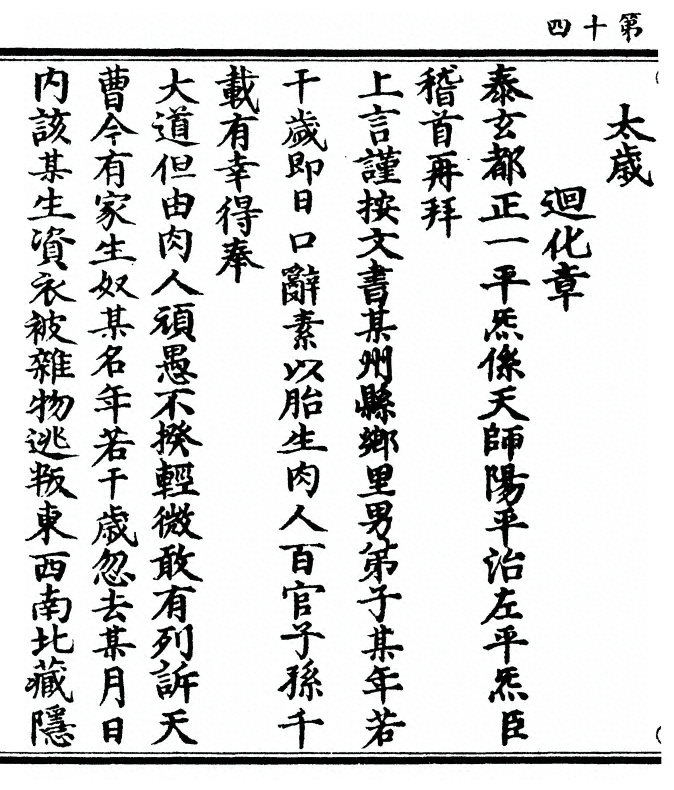 第十四
太歲
迴化章
泰玄都正一平炁係天師陽平治左平炁臣
稽首再拜
上言謹按文書某州縣鄉里男弟子某年若
干歲即日口辭素以胎生肉人百官子孫千
載有幸得奉
大道但由肉人頑愚不揆輕微敢有列訴天
曹今有家生奴某名年若干歲忽去某月日
内該某生資衣被雜物逃叛東西南北藏隱